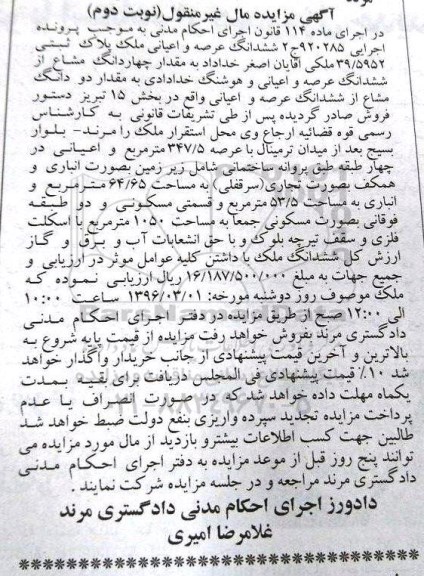 آگهی مزایده مال غیرمنقول(نوبت دوم)
در اجرای ماده ۱۱۴ قانون اجرای احکام مدنی به موجب پرونده
اجرایی ۹۲۰۲۸۵ج۲ ششدانگ عرصه و اعیانی ملک پلاک ثبتی
۳۹/۵۹۵۲ ملکی آقایان اصغر خداداد به مقدار چهاردانگ مشاع از
ششدانگ عرصه و اعیانی و هوشنگ خدادادی به مقدار دو دانگ
مشاع از ششدانگ عرصه و اعیانی واقع در بخش ۱۵ تبریز دستور
فروش صادر گردیده پس از طی تشریفات قانونی به کارشناس
رسمی قوه قضائیه ارجاع وی محل استقرار ملک را مرند- بلوار
بسیج بعد از میدان ترمینال با عرصه ۳۴۷/۵ مترمربع و اعیانی در
چهار طبقه طبق پروانه ساختمانی شامل زیر زمین بصورت انباری و
همکف بصورت تجاری(سرقفلی) به مساحت ۶۴/۶۵ مترمربع و
انباری به مساحت ۵۳/۵ مترمربع و قسمتی مسکونی و دو طبقه
فوقانی بصورت مسکونی جمعا به مساحت ۱۰۵۰ مترمربع با اسکلت
فلزی و سقف تیرچه بلوک و با حق انشعابات آب و برق و گاز
ارزش کل ششدانگ ملک با داشتن کلیه عوامل موثر در ارزیابی و
جمیع جهات به مبلغ ۱۶/۱۸۷/۵۰۰/۰۰۰ ریال ارزیابی نموده که
ملک موصوف روز دوشنبه مورخه: ۱۳۹۶/۰۳/۰۱ ساعت ۱۰:۰۰
الی ۱۲:۰۰ صبح از طریق مزایده در دفتر اجرای احکام مدنی
دادگستری مرند بفروش خواهد رفت مزایده از قیمت پایه شروع به
بالاترین و آخرین قیمت پیشنهادی از جانب خریدار واگذار خواهد
شد ۱۰٪ قیمت پیشنهادی فی المجلس دریافت برای بقیه بمدت
یکماه مهلت داده خواهد شد که در صورت انصراف یا عدم
پرداخت مزایده تجدید سپرده واریزی بنفع دولت ضبط خواهد شد
طالبین جهت کسب اطلاعات بیشترو بازدید از مال مورد مزایده می
توانند پنج روز قبل از موعد مزایده به دفتر اجرای احکام مدنی
دادگستری مرند مراجعه و در جلسه مزایده شرکت نمایند .
دادورز اجرای احکام مدنی دادگستری مرند
غلامرضا امیری